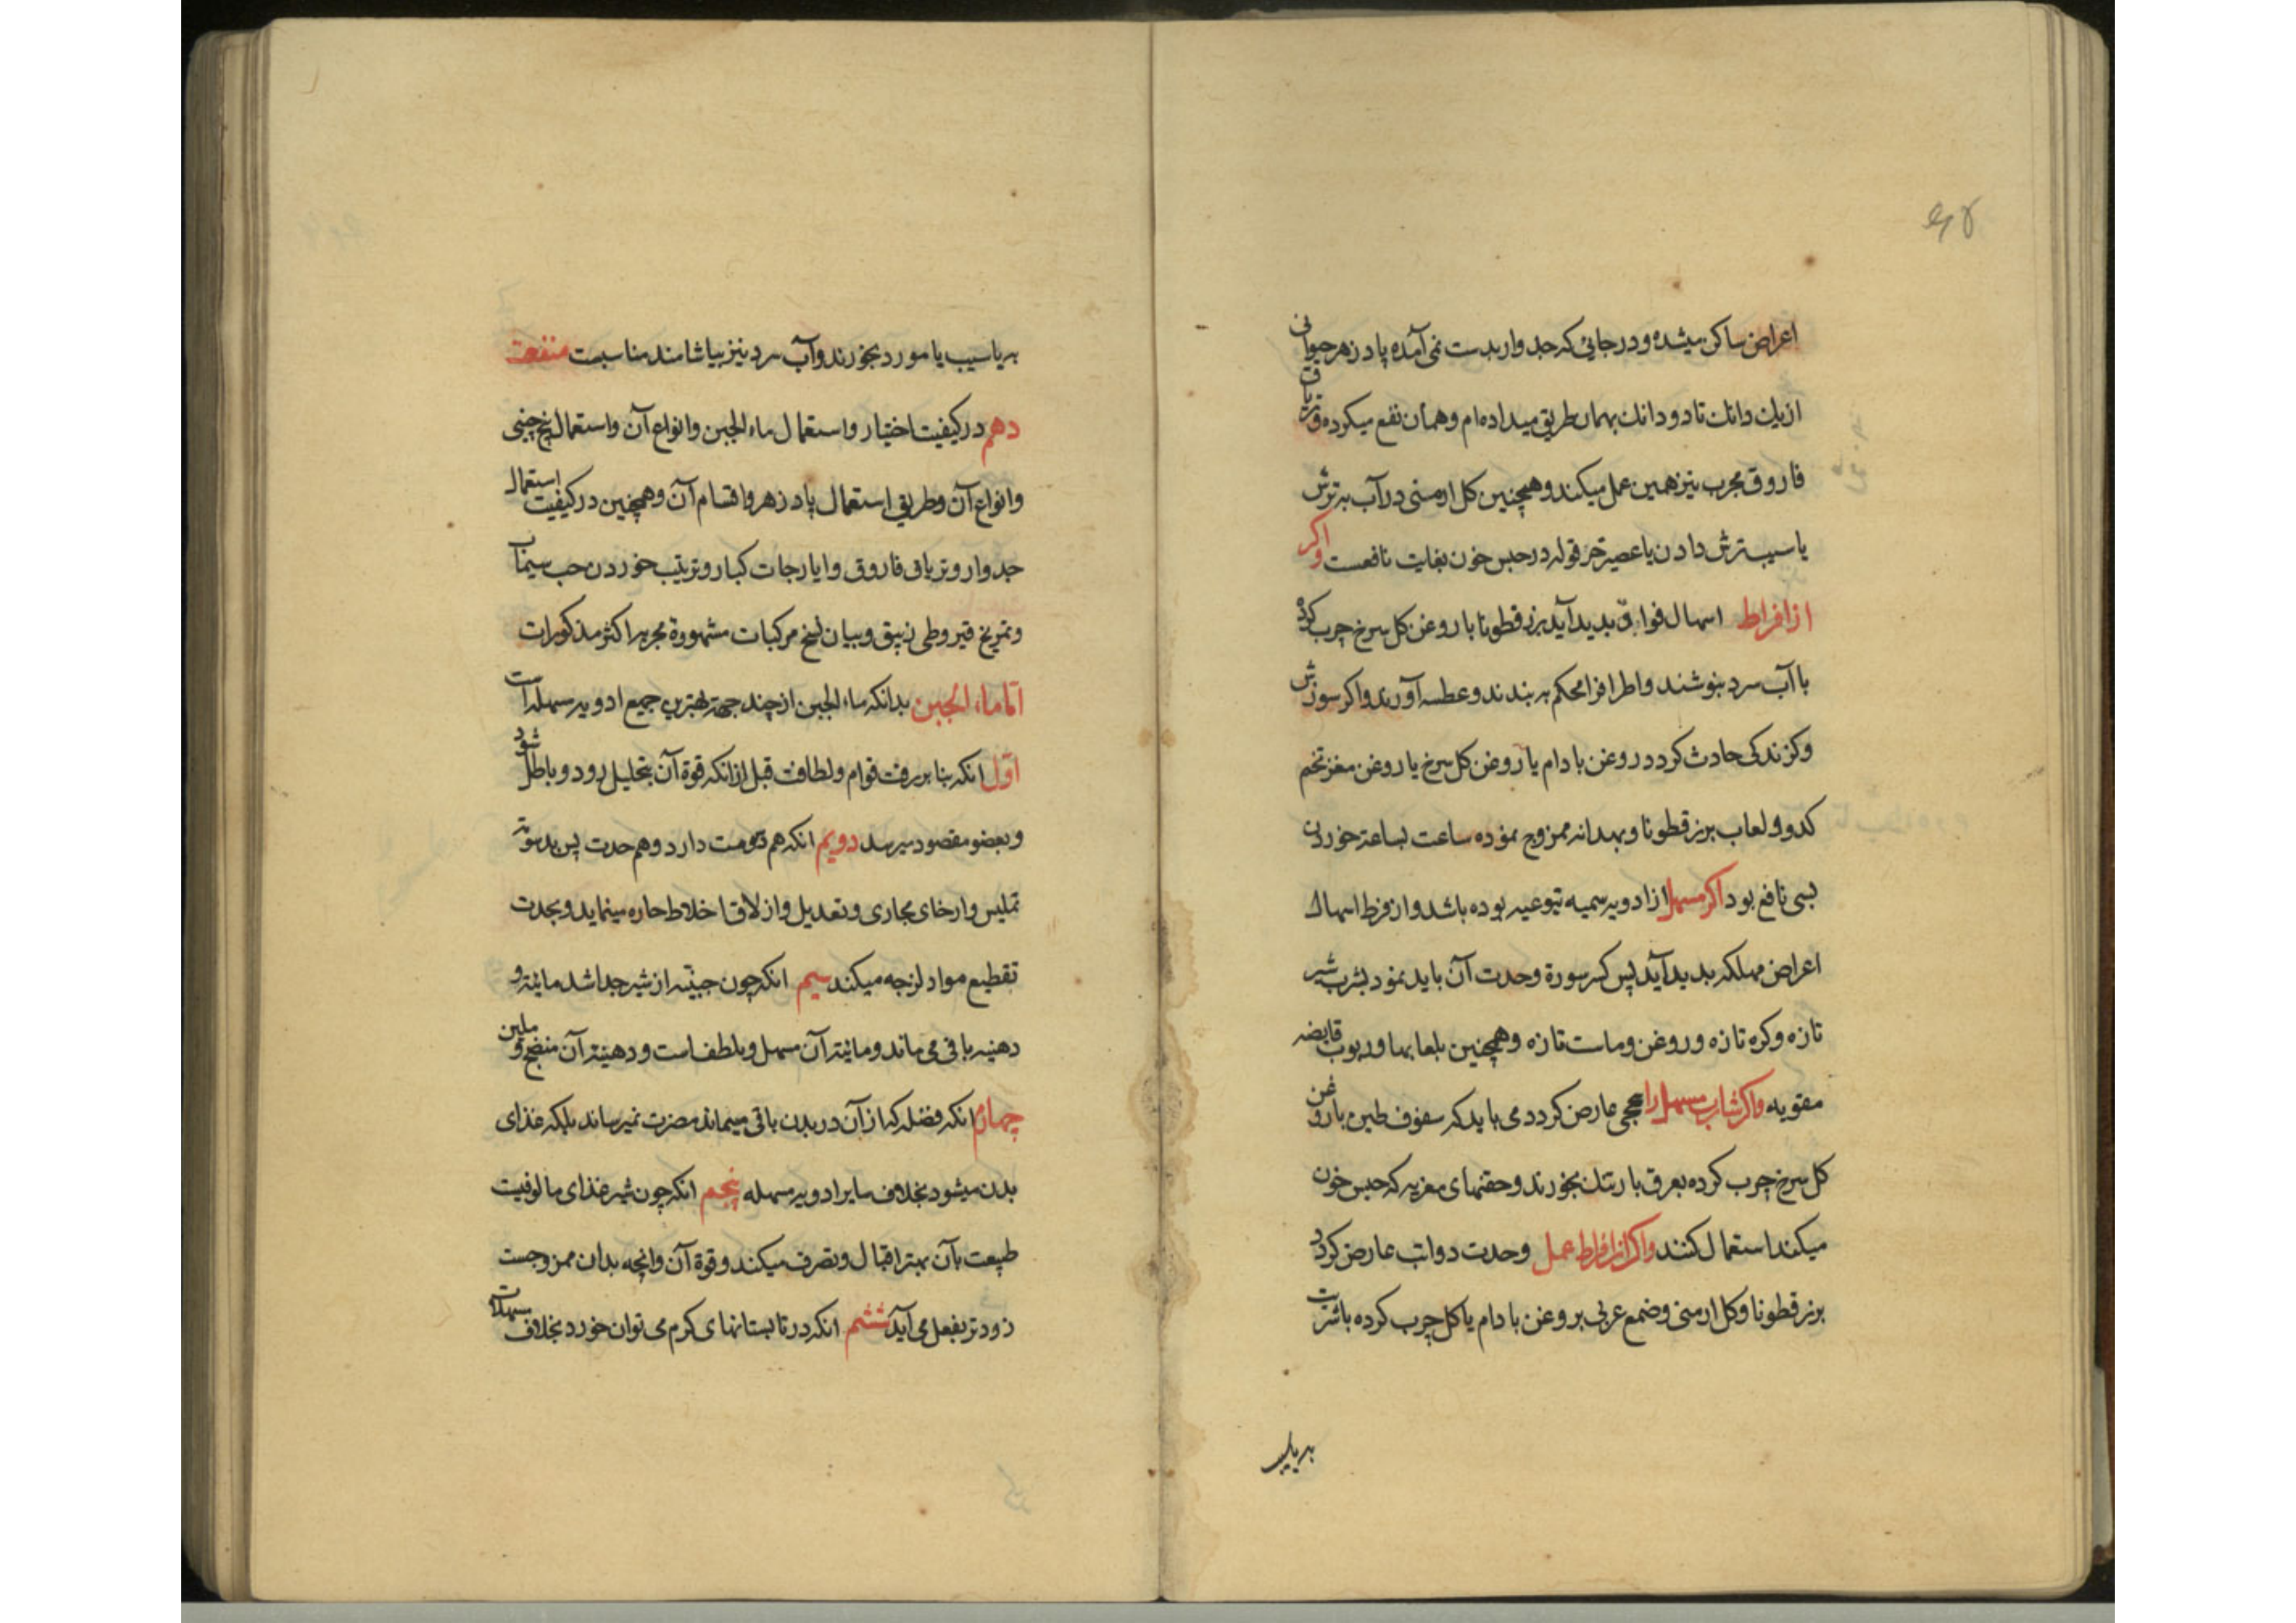 اعراض ساکن میشده و در جائی که جدوار بدست نمی آمده پادزهر حیوانی
از یک دانک تا دو دانک بهمان طریق میداده ام و همان نفع میکرده و تریاق
فاروق مجرب نیز همین عمل میکند و همچنین کل ارمنی در آب به ترش
یا سیب ترش دادن یا عصیر خرقوله در حبس خون بغایت نافعست و اکر
از افراط اسهال فواق بدید آید بزرقطونا با روغن کل سرخ چرب کرده
با آب سرد بنوشند و اطرافرا محکم به بندند و عطسه آورند و اکر سوزش
وکزندکی حادث کردد روغن بادام یا روغن کل سرخ یا روغن مغز تخم
کدو و لعاب بزرقطونا و بهدانه ممزوج نموده ساعت بساعة خوردن
بسی نافع بود اکر مسهل از ادویه سمیه تیوعیه بوده باشد و از فرط اسهال
اعراض مهلکه بدید آید پس کسر سورة وحدت آن باید نمود بشرب شیر
تازه وکره تازه وروغن وماست تازه وهمچنین بلعابها وربوب قابضه
مقویه واکر شارب مسهل را سحجی عارض کردد می باید که سفوف طین با روغن
کل سرخ چرب کرده بعرق بارتنک بخورند وحقنهای مغریه که حبس خون
میکند استعمال کنند واکر از افراط عمل وحدت دوا تب عارض کردد
بزرقطونا وکل ارمنی وضمع عربی بروغن بادام یا کل چرب کرده باشربت
به یا سیب
به یا سیب یا مورد بخورند وآب سرد نیز بیاشامند مناسبت منفعت
دهم در کیفیت اختیار واستعمال ماء الجبن وانواع آن واستعمال بیخ چینی
وانواع آن وطریق استعمال پادزهر واقسام آن وهمچنین در کیفیت استعمال
جدوار وتریاق فاروق وایارجات کبار وترتیب خوردن حب سیماب
وتمریخ قیروطی زیبق وبیان نسخ مرکبات مشهورة مجربه اکثر مذکورات
امّا ماء الجبن بدانکه ماء الجبن از چند جهة بهترین جمیع ادویه مسهله است
اوّل انکه بنا بر رقت قوام ولطافت قبل از انکه قوة آن بتحلیل رود وباطل شود
وبعضو مقصود میرسد دویم انکه هم دسومت دارد وهم حدت پس بدسومة
تملیس وارخای مجاری وتعدیل وازلاق اخلاط حاره مینماید وبحدت
تقطیع مواد لزجه میکند سیم انکه چون جبنیّه از شیر جدا شد مائیة و
دهنیه باقی می ماند ومائیة آن مسهل وملطف است ودهنیة آن منضج و ملین
چهارم انکه فضله که از آن در بدن باقی میماند مضرت نمیرساند بلکه غذای
بدن میشود بخلاف سایر ادویه مسهله پنجم انکه چون شیر غذای مالوفیت
طبیعت بآن بهتر اقبال وتصرف میکند وقوة آن وانچه بدان ممزوجست
زودتر بفعل می آید ششم انکه در تابستانهای کرم می توان خورد بخلاف مسهلات